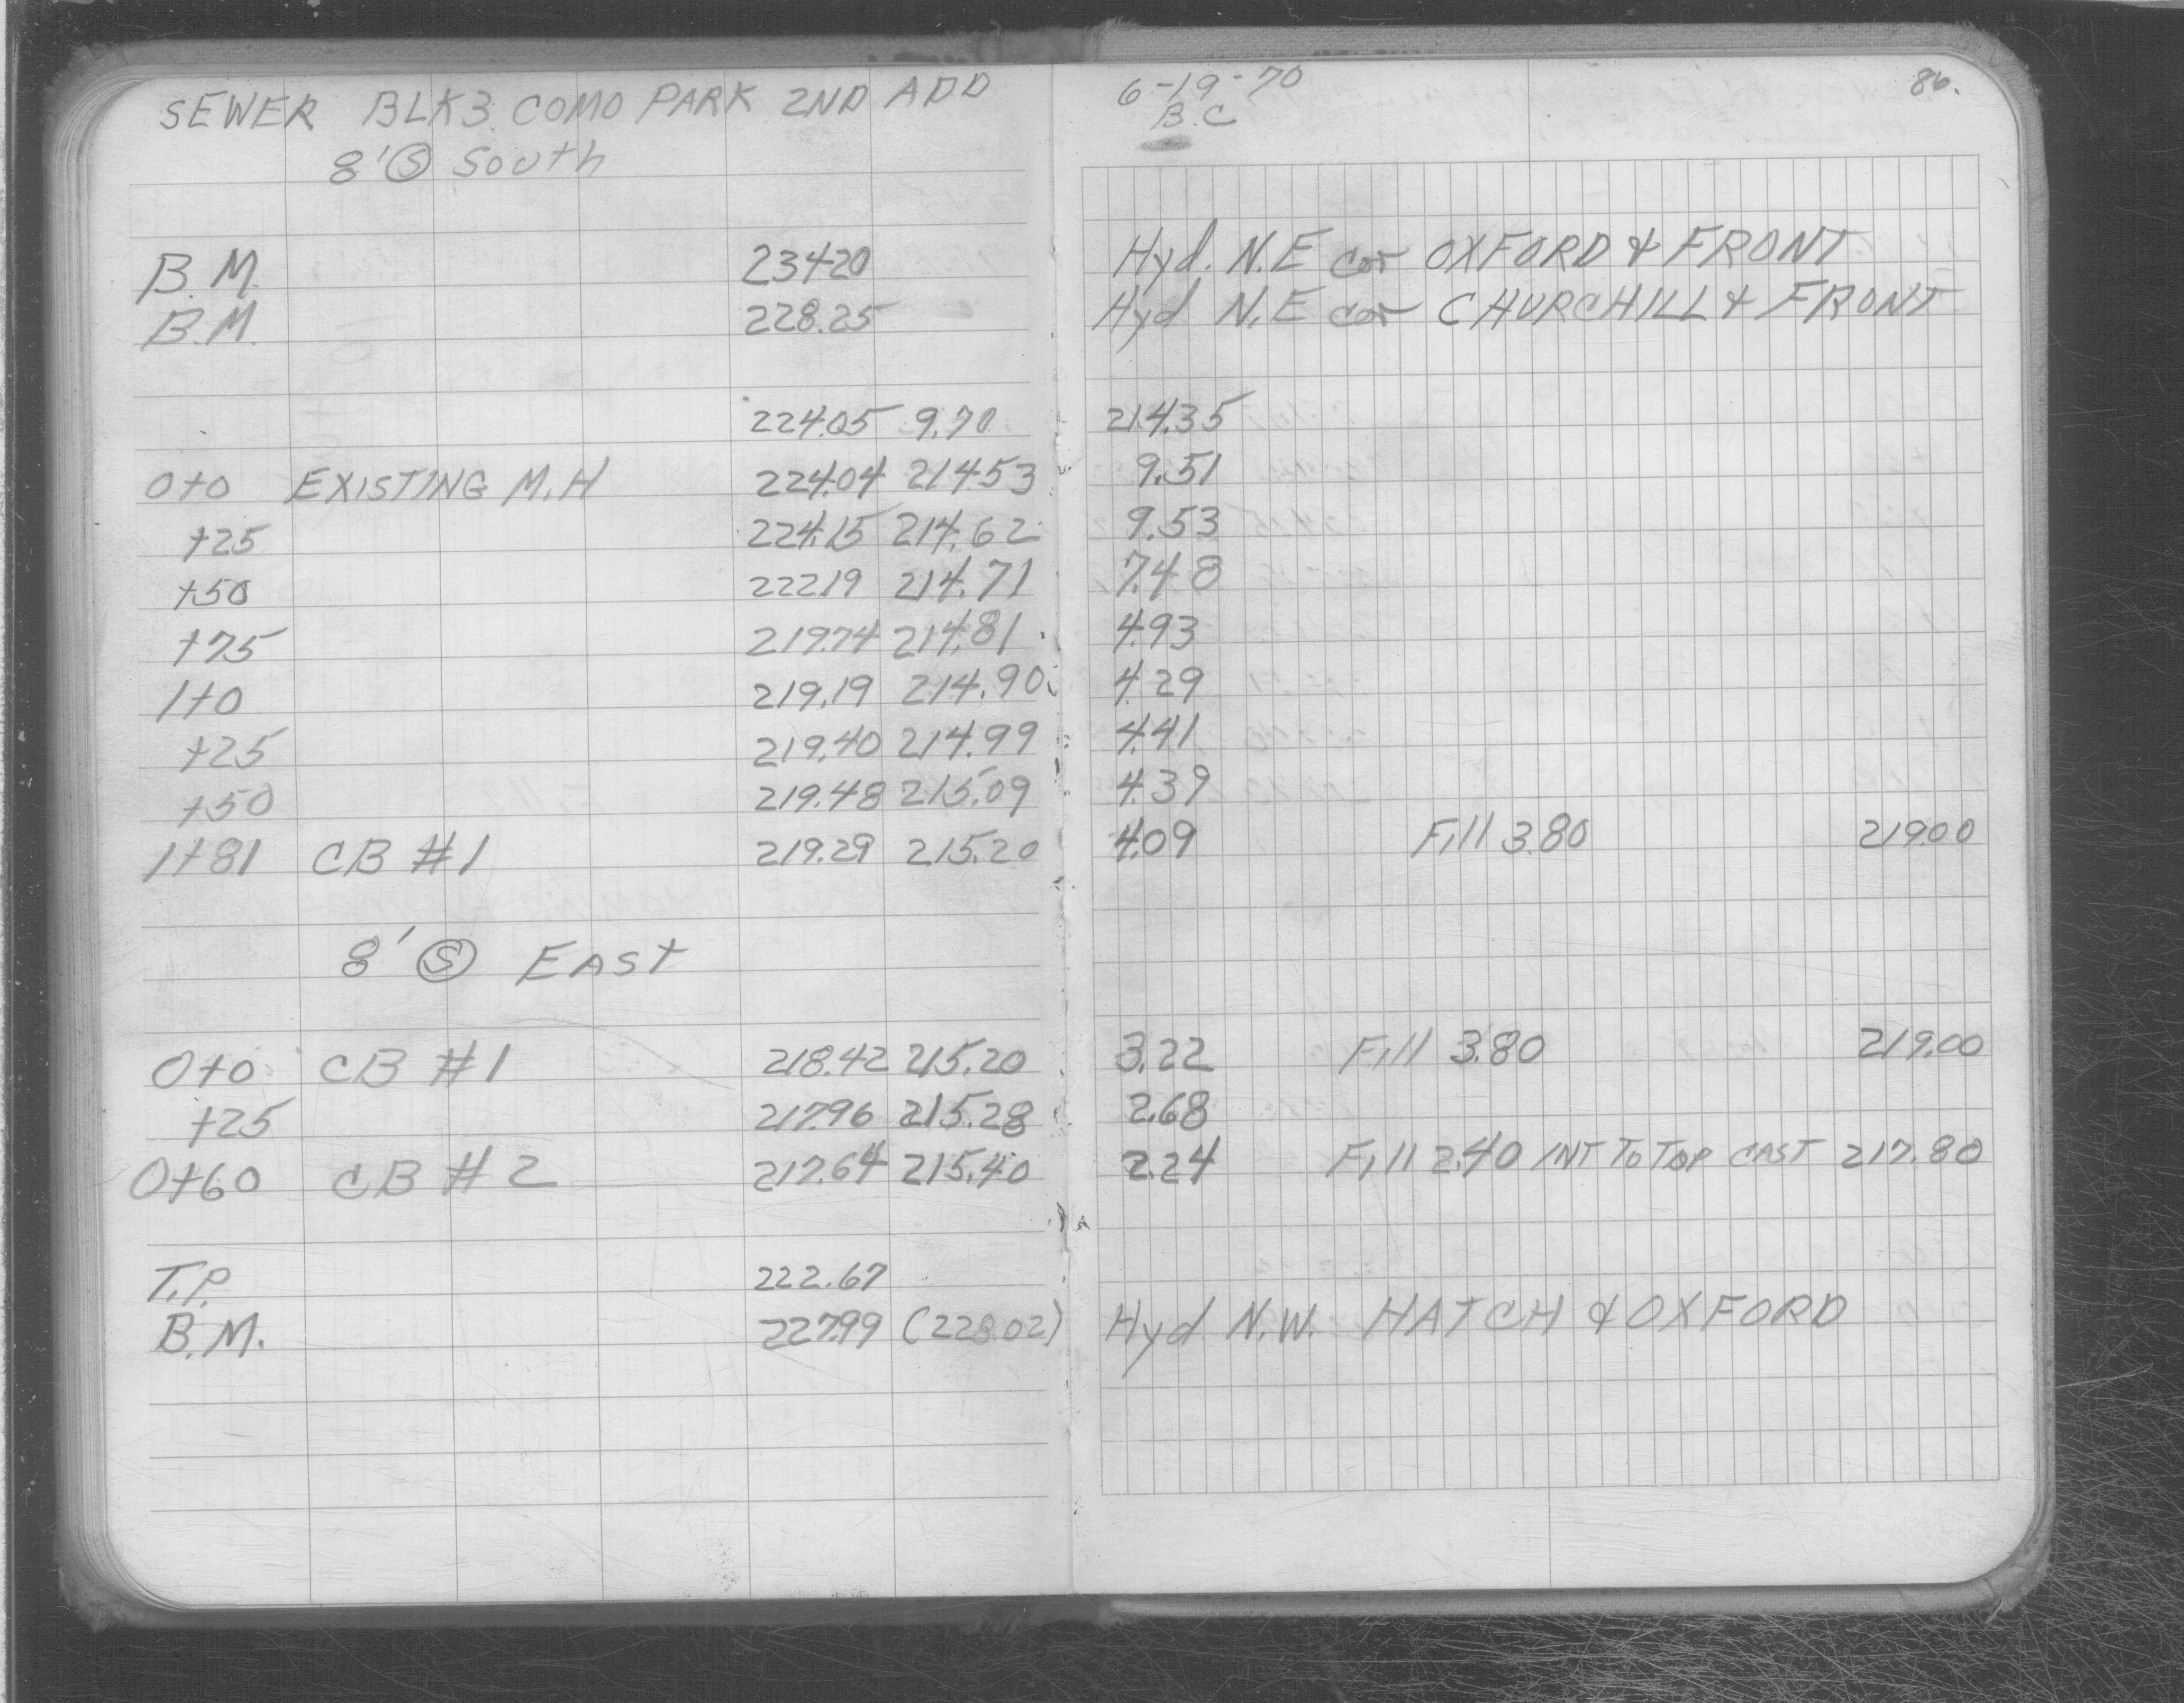 SEWER BLK3 COMO PARK 2ND ADD 6-19-70 86.
8' Ⓢ South B.C
B.M. 234.20 Hyd. N.E cor OXFORD & FRONT
B.M. 228.25 Hyd N.E cor CHURCHILL & FRONT
224.05 9.70 214.35
0+0 EXISTING M.H 224.04 214.53 9.51
+25 224.15 214.62 9.53
+50 222.19 214.71 7.48
+75 219.74 214.81 4.93
1+0 219.19 214.90 4.29
+25 219.40 214.99 4.41
+50 219.48 215.09 4.39
1+81 CB #1 219.29 215.20 4.09 Fill 3.80 219.00
8' Ⓢ EAST
0+0 CB #1 218.42 215.20 3.22 Fill 3.80 219.00
+25 217.96 215.28 2.68
0+60 CB #2 217.64 215.40 2.24 Fill 2.40 INT TO TOP CAST 217.80
T.P. 222.67
B.M. 227.99 (228.02) Hyd N.W. HATCH & OXFORD